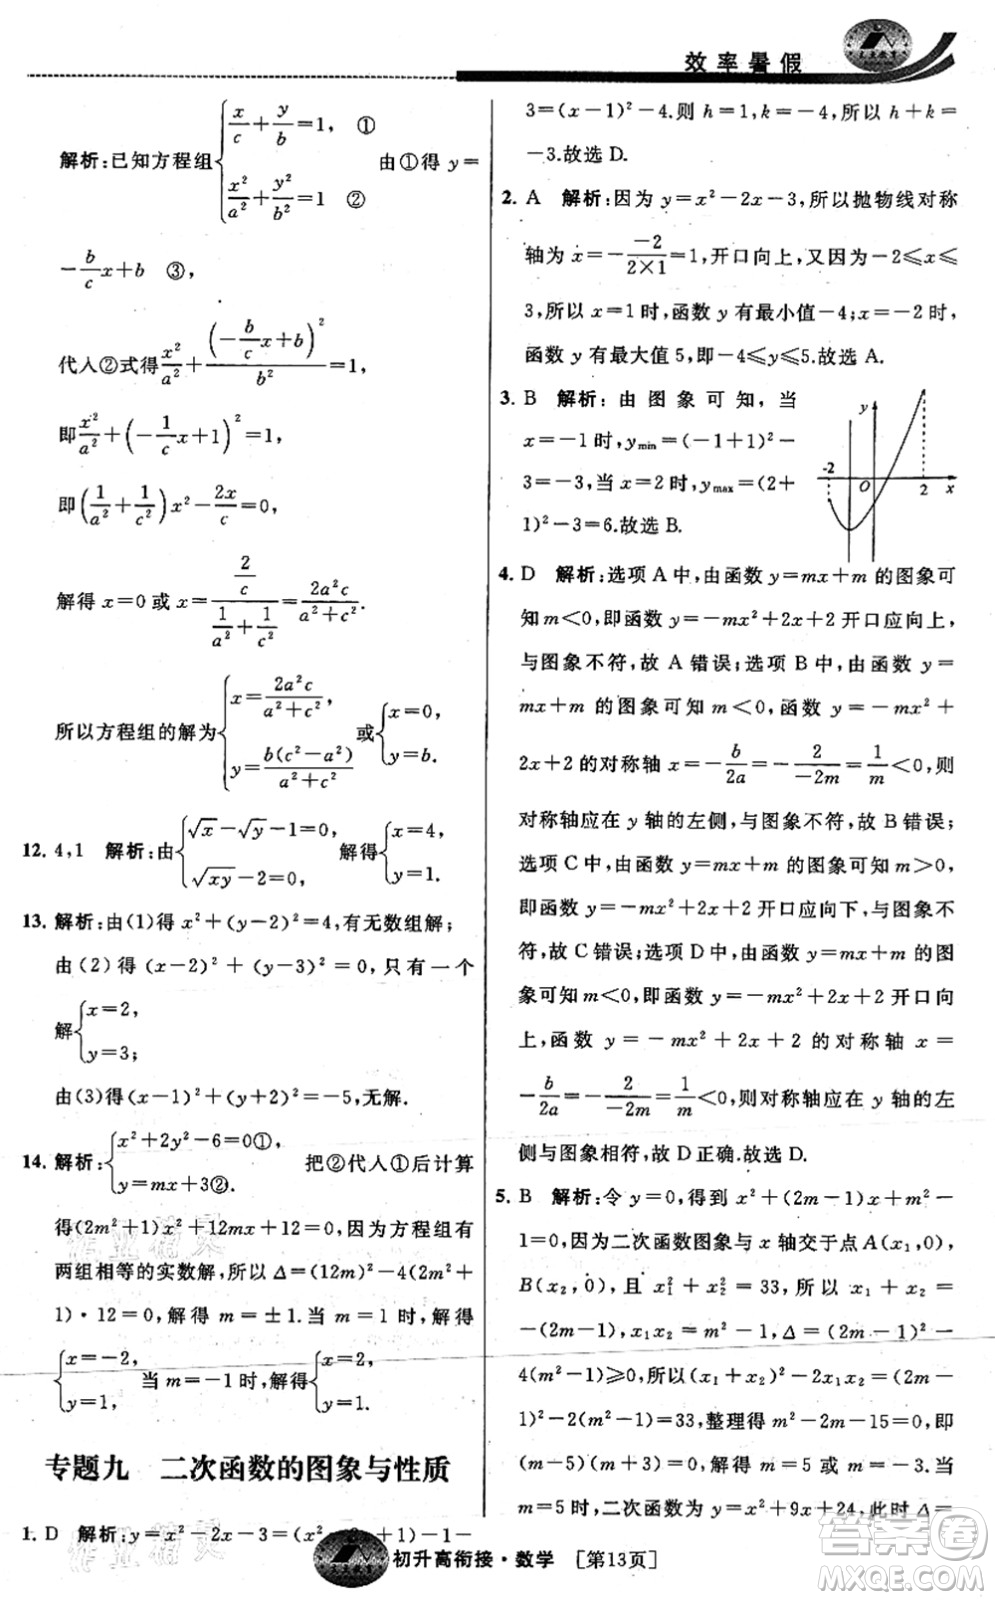 效率暑假
解析:已知方程组{x/c+y/b=1, ① x²/a²+y²/b²=1 ② 由①得 y=
-b/c x+b ③,
代人②式得x²/a²+(-b/c x+b)²/b²=1,
即x²/a²+(-1/c x+1)²=1,
即(1/a²+1/c²)x²-2x/c=0,
解得 x=0 或 x=(2/c)/(1/a²+1/c²)=2a²c/(a²+c²).
所以方程组的解为{x=2a²c/(a²+c²) y=b(c²-a²)/(a²+c²) 或{x=0, y=b.
12. 4,1 解析:由{√x-√y-1=0, √xy-2=0 解得{x=4, y=1.
13. 解析:由(1)得 x²+(y-2)²=4,有无数组解;
由(2)得(x-2)²+(y-3)²=0,只有一个
解{x=2, y=3;
由(3)得(x-1)²+(y+2)²=-5,无解.
14. 解析:{x²+2y²-6=0①, y=mx+3②. 把②代人①后计算
得(2m²+1)x²+12mx+12=0,因为方程组有
两组相等的实数解,所以 Δ=(12m)²-4(2m²+
1)·12=0,解得 m=±1.当 m=1 时,解得
{x=-2, y=1, 当 m=-1 时,解得{x=2, y=1.
专题九 二次函数的图象与性质
1. D 解析:y=x²-2x-3=(x²-2x+1)-1-
3=(x-1)²-4.则 h=1,k=-4,所以 h+k=
-3.故选 D.
2. A 解析:因为 y=x²-2x-3,所以抛物线对称
轴为 x=-(-2)/(2×1)=1,开口向上,又因为-2≤x≤
3,所以 x=1 时,函数 y 有最小值-4;x=-2 时,
函数 y 有最大值 5,即-4≤y≤5.故选 A.
3. B 解析:由图象可知,当
x=-1 时,y min=(-1+1)²-
3=-3,当 x=2 时,y max=(2+
1)²-3=6.故选 B.
y
-2 O 2 x
4. D 解析:选项 A 中,由函数 y=mx+m 的图象可
知 m<0,即函数 y=-mx²+2x+2 开口应向上,
与图象不符,故 A 错误;选项 B 中,由函数 y=
mx+m 的图象可知 m<0,函数 y=-mx²+
2x+2 的对称轴 x=-b/2a=-2/(-2m)=1/m<0,则
对称轴应在 y 轴的左侧,与图象不符,故 B 错误;
选项 C 中,由函数 y=mx+m 的图象可知 m>0,
即函数 y=-mx²+2x+2 开口应向下,与图象不
符,故 C 错误;选项 D 中,由函数 y=mx+m 的图
象可知 m<0,即函数 y=-mx²+2x+2 开口向
上,函数 y=-mx²+2x+2 的对称轴 x=
-b/2a=-2/(-2m)=1/m<0,则对称轴应在 y 轴的左
侧与图象相符,故 D 正确.故选 D.
5. B 解析:令 y=0,得到 x²+(2m-1)x+m²-
1=0,因为二次函数图象与 x 轴交于点 A(x₁,0),
B(x₂,0),且 x₁²+x₂²=33,所以 x₁+x₂=
-(2m-1),x₁x₂=m²-1,Δ=(2m-1)²-
4(m²-1)≥0,所以(x₁+x₂)²-2x₁x₂=(2m-
1)²-2(m²-1)=33,整理得 m²-2m-15=0,即
(m-5)(m+3)=0,解得 m=5 或 m=-3.
当 m=5 时,二次函数 y=x²+9x+24,此时 Δ=
初升高衔接·数学 [第13页]
答案圈
MXQE.COM